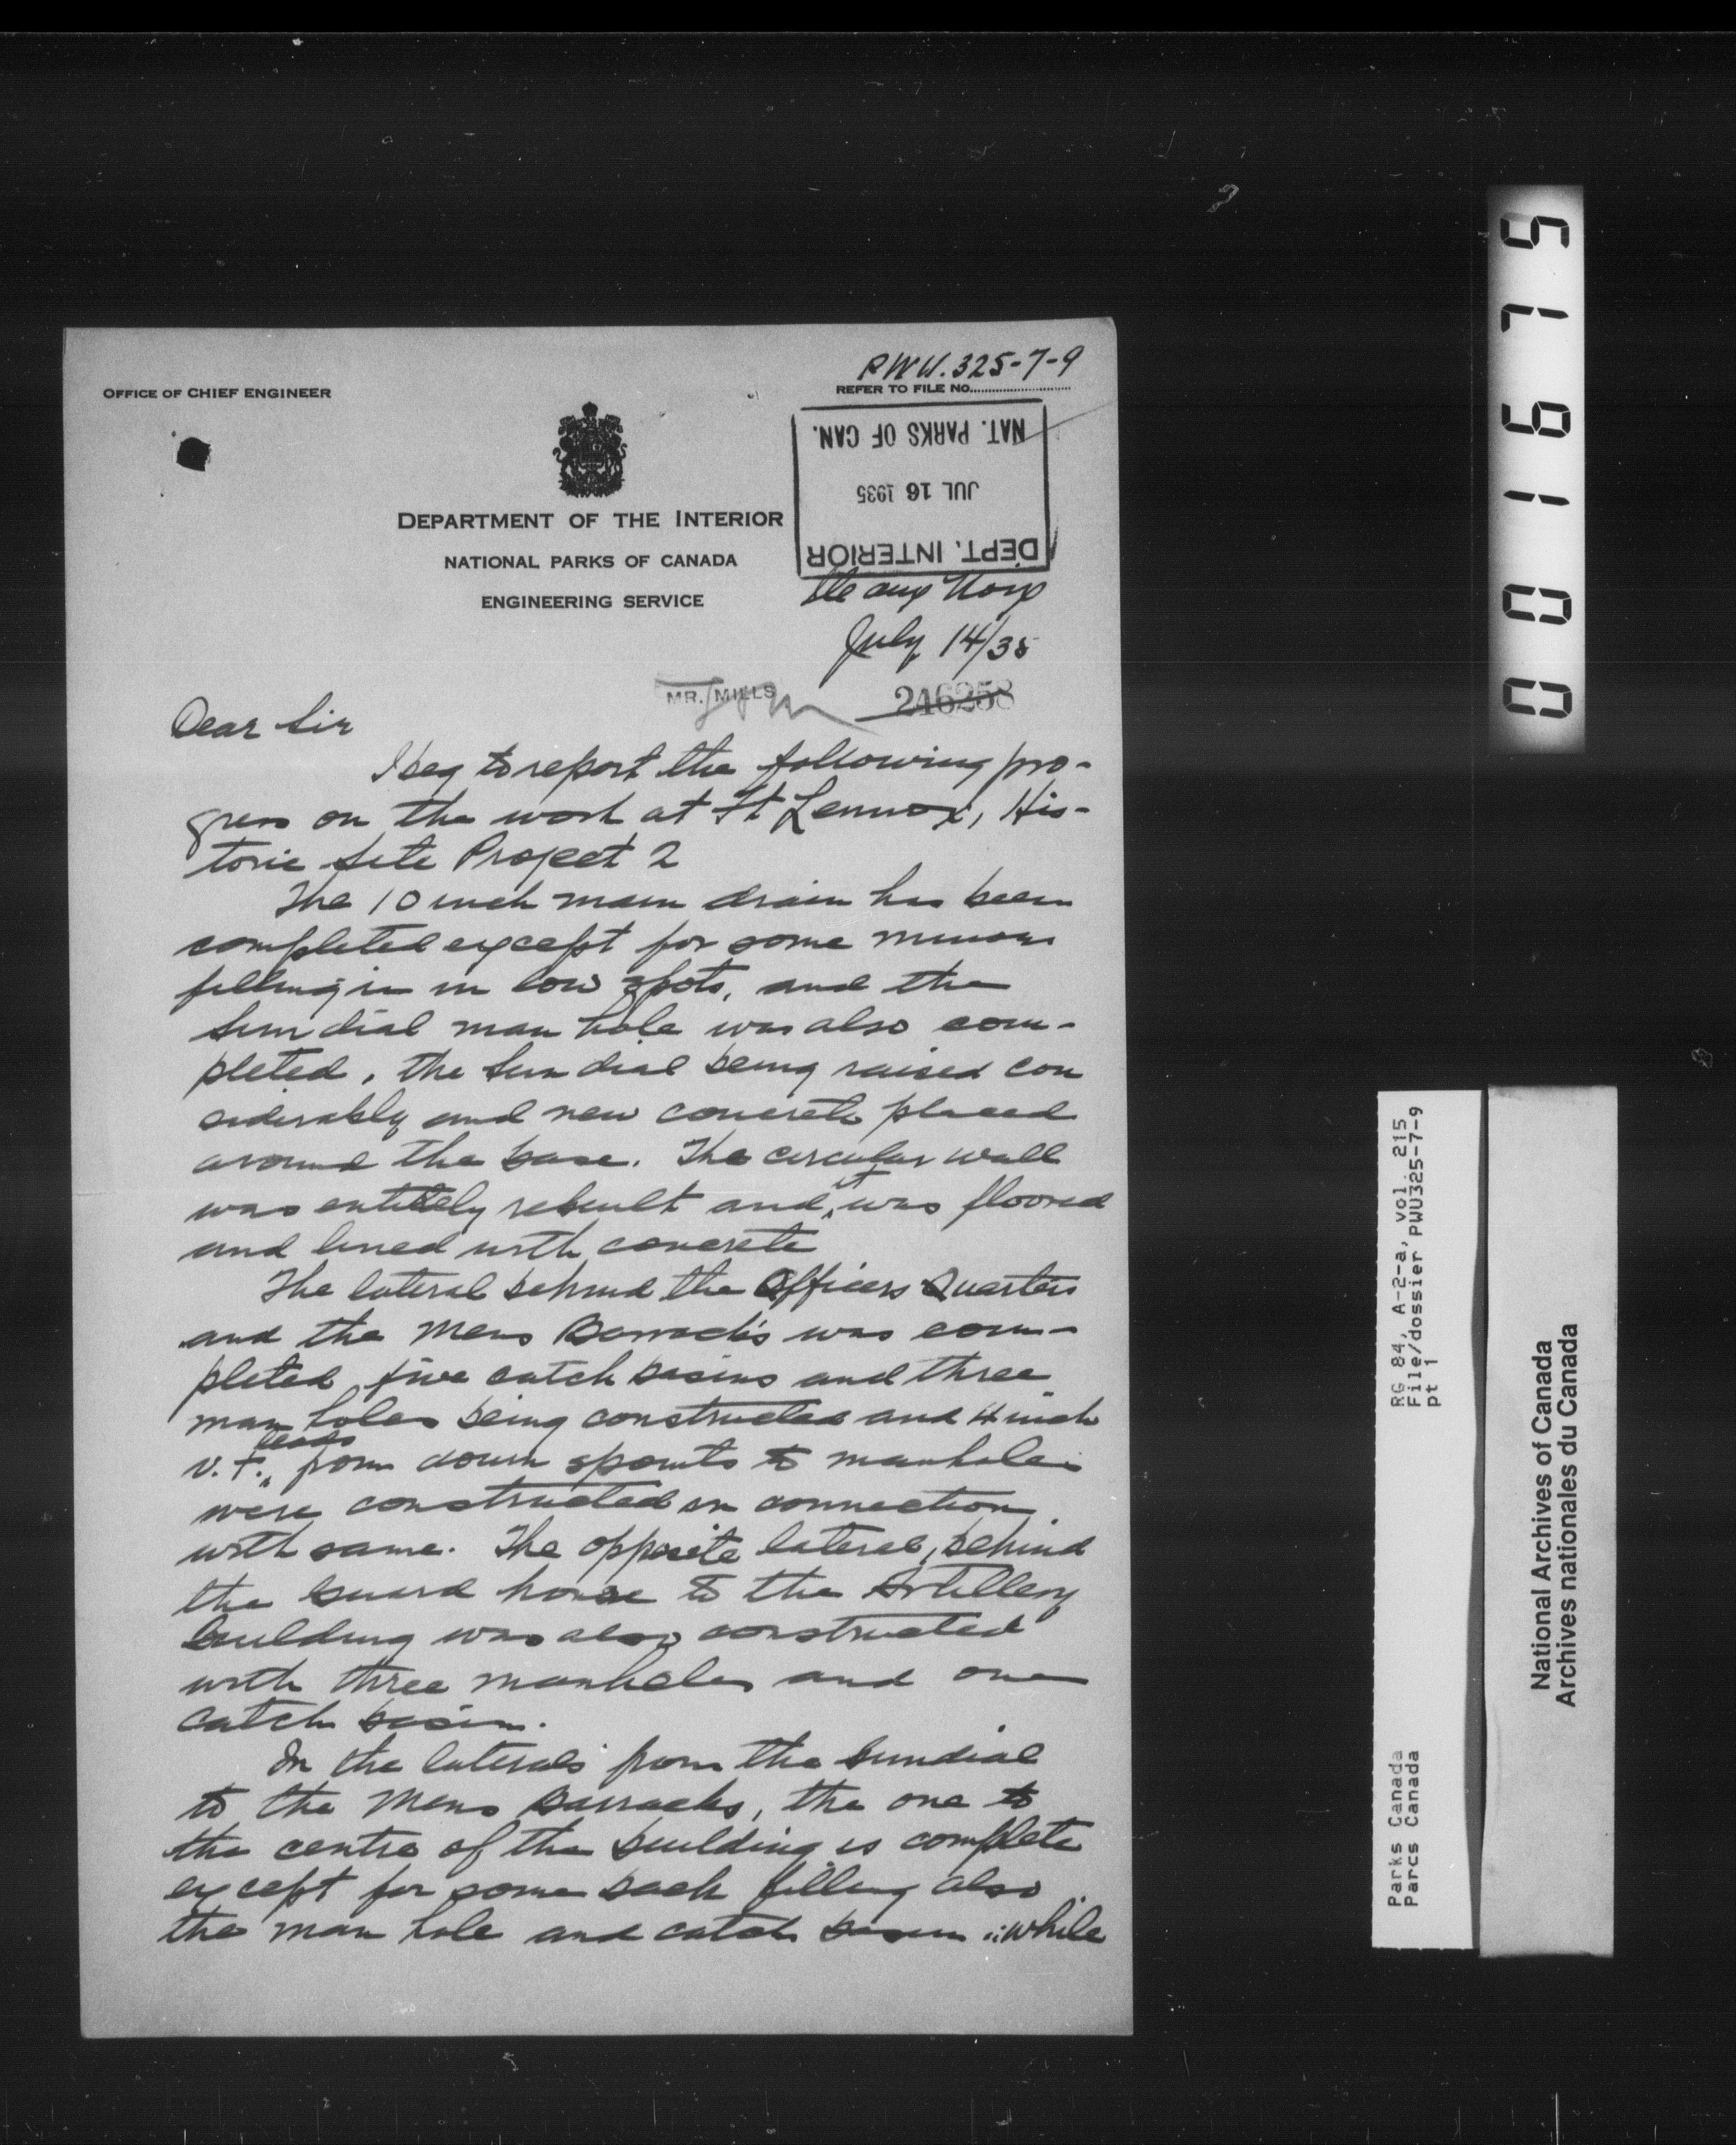 PWU.325-7-9
OFFICE OF CHIEF ENGINEER
REFER TO FILE NO.
NAT. PARKS OF CAN.
JUL 16 1935
DEPT. INTERIOR
DEPARTMENT OF THE INTERIOR
NATIONAL PARKS OF CANADA
ENGINEERING SERVICE
Ile aux Noix
July 14/35
MR. MILLS
246258
Dear Sir
I beg to report the following pro-
gress on the work at Ft Lennox, His-
toric Site Project 2
The 10 inch main drain has been
completed except for some minor
filling in in low spots, and the
Sun dial man hole was also com-
pleted, the Sun dial being raised con
siderably and new concrete placed
around the base. The circular wall
was entirely rebuilt and it was floored
and lined with concrete
The lateral behind the Officers Quarters
and the Mens Barracks was com-
pleted five catch basins and three
man holes being constructed and 4 inch
V.T. leads from down spouts to manholes
were constructed in connection
with same. The opposite lateral, behind
the Guard house to the Artillery
building was also constructed
with three manholes and one
catch basin.
In the laterals from the Sundial
to the Mens Barracks, the one to
the centre of the building is complete
except for some back filling also
the man hole and catch basin :while
0001675
RG 84, A-2-a, vol. 215
File/dossier PWU325-7-9
pt 1
Parks Canada
Parcs Canada
National Archives of Canada
Archives nationales du Canada